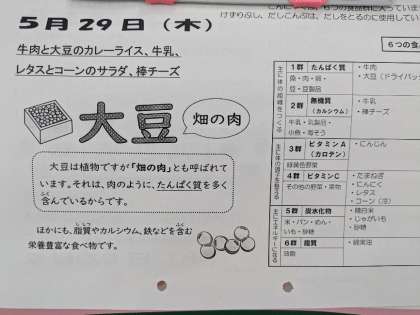 5月29日（木）
けずりぶし、だしこんぶは、だしをとるのに使用してい
牛肉と大豆のカレーライス、牛乳、
レタスとコーンのサラダ、棒チーズ
大豆
畑の肉
大豆は植物ですが「畑の肉」とも呼ばれて
います。それは、肉のように、たんぱく質を多く
含んでいるからです。
ふく
ほかにも、脂質やカルシウム、鉄などを含む
ししつ
ふく
栄養豊富な食べ物です。
6つの食
主に体の組織をつくる
1群 たんぱく質
魚・肉・卵・
豆・豆製品
・牛肉
・大豆（ドライパッ
2群 無機質
（カルシウム）
牛乳・乳製品・
小魚・海そう
・牛乳
・棒チーズ
主に体の調子を整える
3群 ビタミンA
（カロテン）
緑黄色野菜
・にんじん
4群 ビタミンC
その他の野菜・果物
・たまねぎ
・にんにく
・レタス
・コーン（冷）
主にエネルギーになる
5群 炭水化物
米・パン・めん・
いも・砂糖
・精白米
・じゃがいも
・砂糖
6群 脂質
油脂